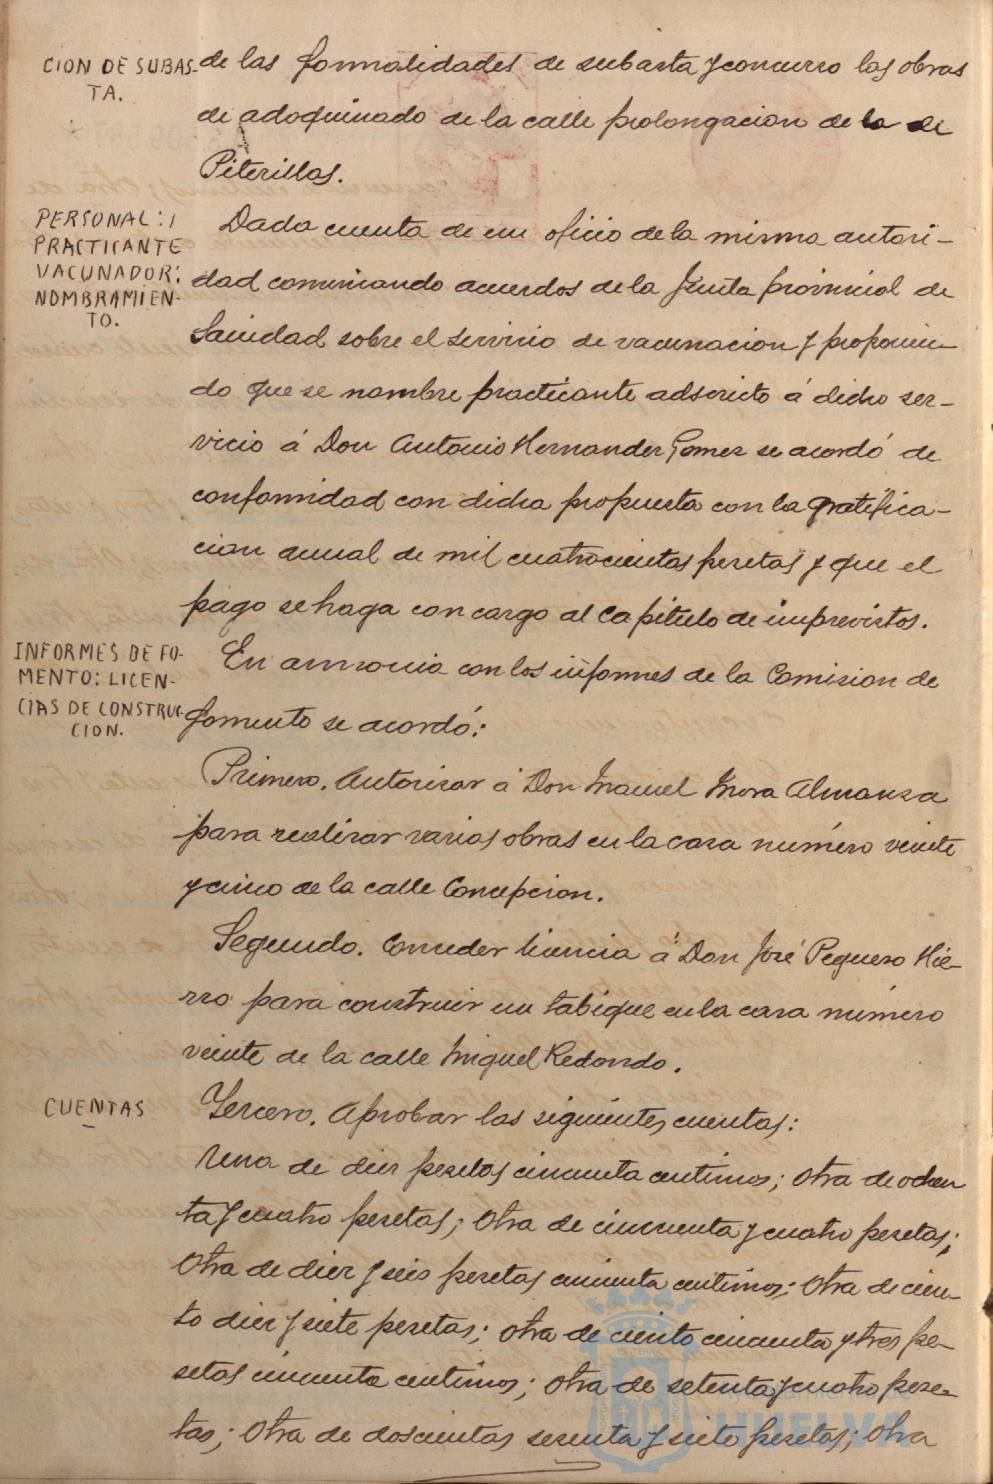 CION DE SUBAS-
TA.
de las formalidades de subasta y concurso las obras
de adoquinado de la calle prolongacion de la de
Piterillas.
PERSONAL:
PRACTICANTE
VACUNADOR:
NOMBRAMIEN-
TO.
Dada cuenta de un oficio de la misma autori-
dad comunicando acuerdos de la Junta provincial de
Sanidad sobre el servicio de vacunacion y proponien-
do que se nombre practicante adscricto á dicho ser-
vicio á Don Antonio Hernandez Gomez se acordó de
conformidad con dicha propuesta con la gratifica-
cion anual de mil cuatrocientas pesetas y que el
pago se haga con cargo al capitulo de imprevistos.
INFORMES DE FO-
MENTO: LICEN-
CIAS DE CONSTRUC-
CION.
En armonia con los informes de la Comision de
fomento se acordó:
Primero. Autorizar á Don Manuel Mora Almansa
para realizar varias obras en la casa número veinte
y cinco de la calle Concepcion.
Segundo. Conceder licencia á Don José Peguero Hie-
rro para construir un tabique en la casa número
veinte de la calle Miguel Redondo.
CUENTAS
Tercero. Aprobar las siguientes cuentas:
Una de diez pesetas cincuenta centimos; otra de ochen
ta y cuatro pesetas; otra de cincuenta y cuatro pesetas;
otra de diez y seis pesetas cincuenta centimos; otra de cien-
to diez y siete pesetas; otra de ciento cincuenta y tres pe-
setas cincuenta centimos; otra de setenta y cuatro pese-
tas; otra de doscientas sesenta y siete pesetas; otra
HUELVA